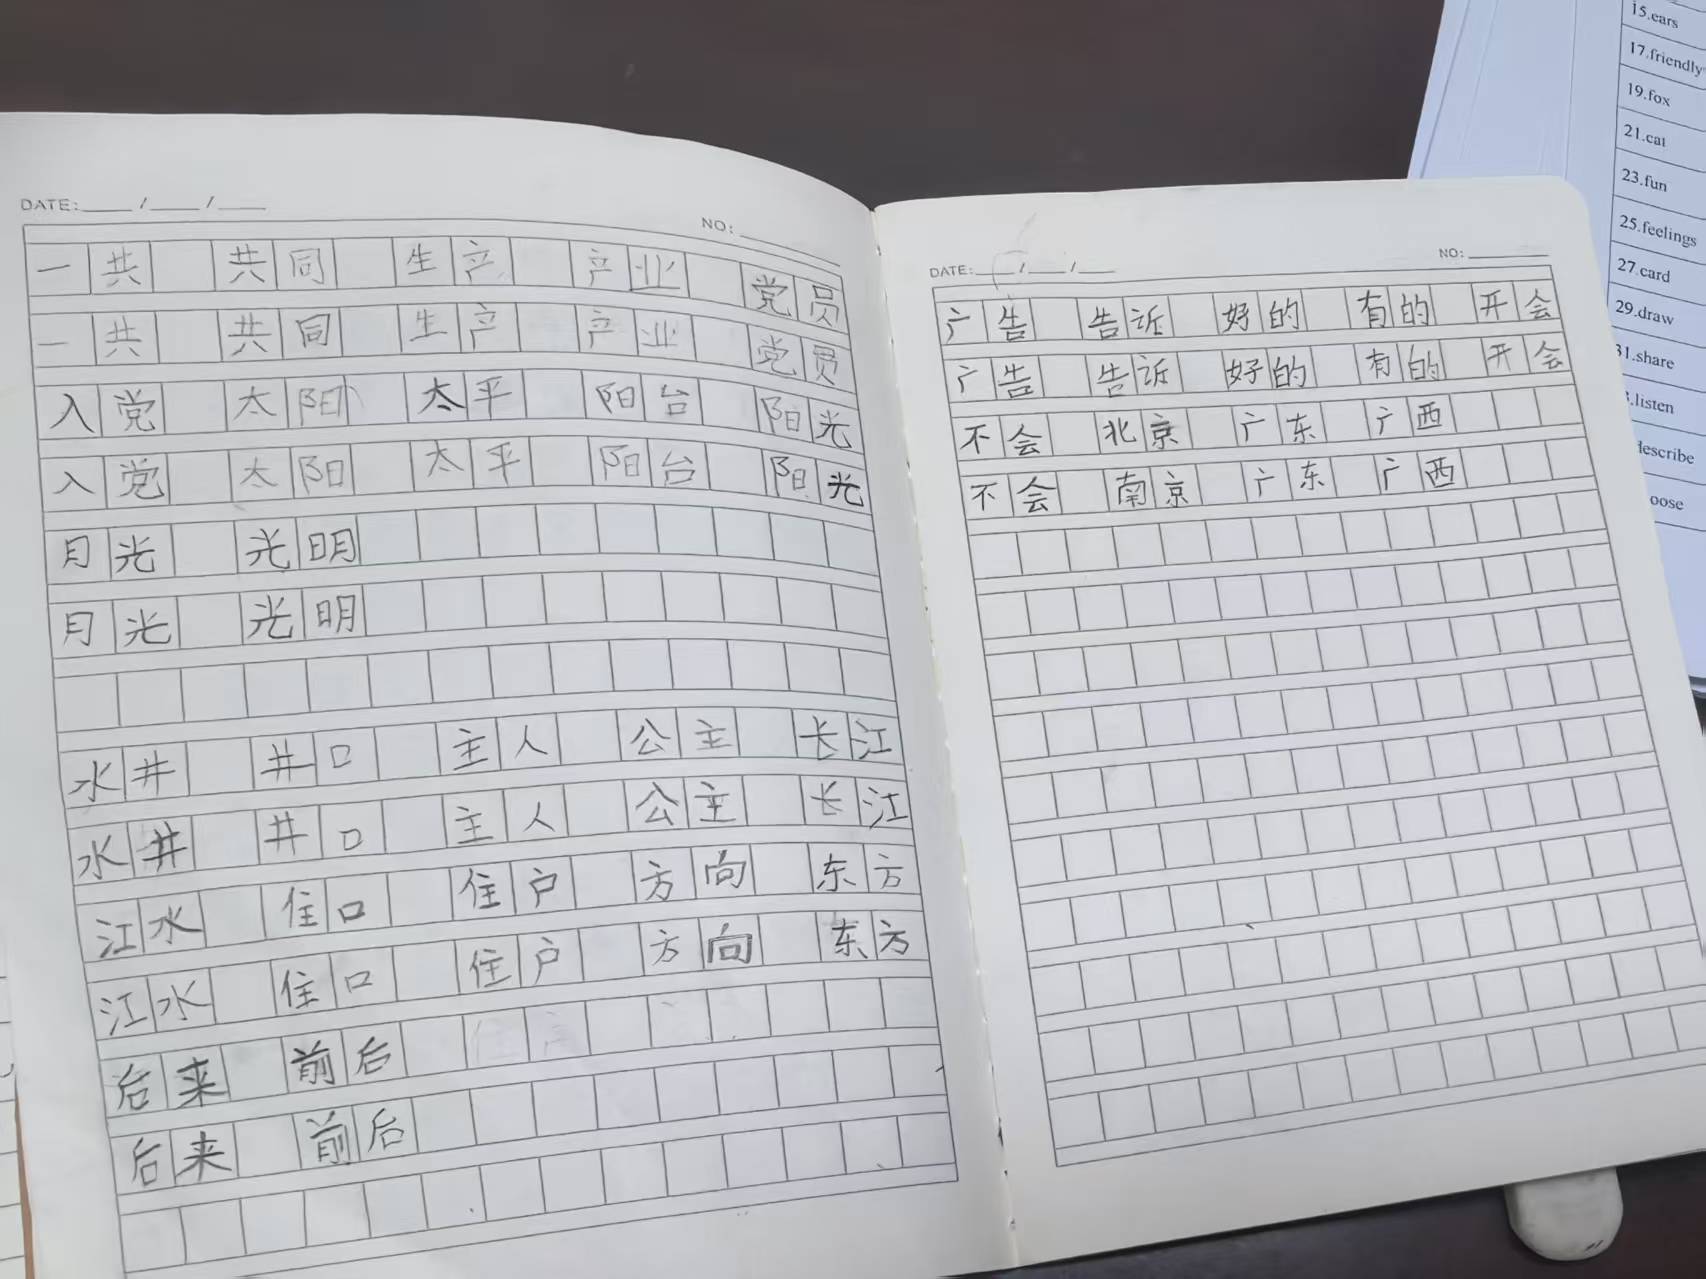 DATE: / /
NO:
一共 共同 生产 产业 党员
一共 共同 生产 产业 党员
入党 太阳 太平 阳台 阳光
入党 太阳 太平 阳台 阳光
月光 光明
月光 光明
水井 井口 主人 公主 长江
水井 井口 主人 公主 长江
江水 住口 住户 方向 东方
江水 住口 住户 方向 东方
后来 前后
后来 前后
DATE: / /
NO:
广告 告诉 好的 有的 开会
广告 告诉 好的 有的 开会
不会 北京 广东 广西
不会 南京 广东 广西
15.ears
17.friendly
19.fox
21.cat
23.fun
25.feelings
27.card
29.draw
31.share
.listen
describe
oose